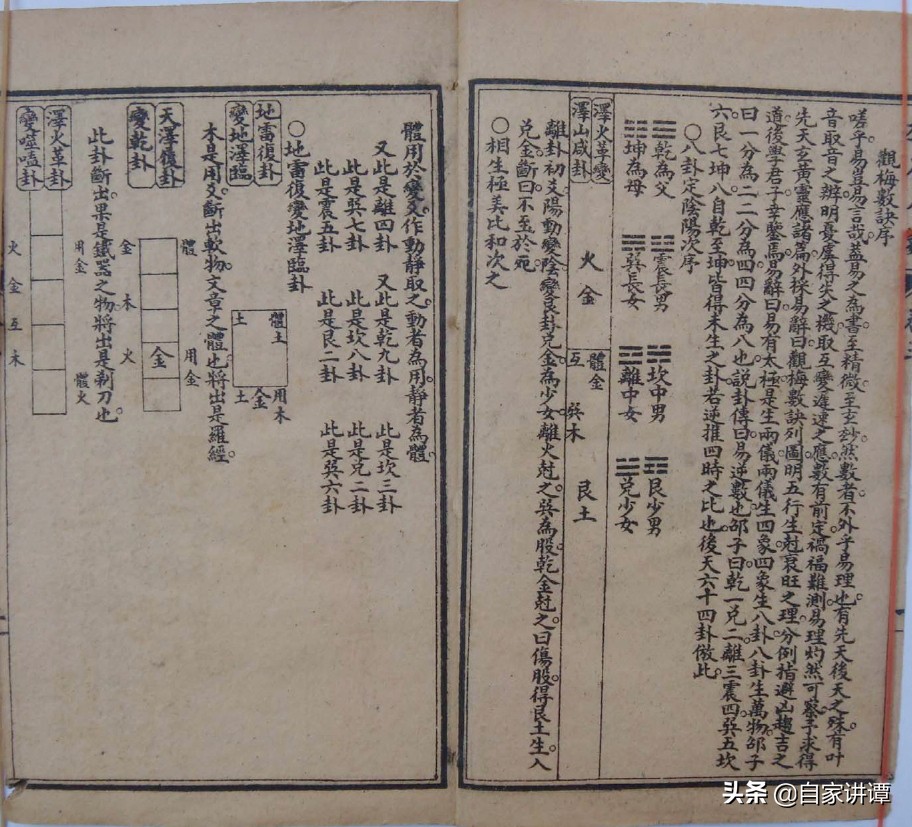 觀梅數訣序
嗟乎易豈易言哉蓋易之為書至精微至玄玅然數者不外乎易理也有先天後天之殊有叶
音取音之辨明憂虞得失之機取互變遲速之應數有前定禍福難測易理灼然可察予求得
先天玄黃靈應諸篇外採易辭曰觀梅數訣列圖明五行生尅衰旺之理分例指避凶趨吉之
道後學君子幸鑒焉易辭曰易有太極是生兩儀兩儀生四象四象生八卦八卦生萬物邵子
曰一分為二二分為四四分為八也說卦傳曰易逆數也邵子曰乾一兌二離三震四巽五坎
六艮七坤八自乾至坤皆得未生之卦若逆推四時之比也後天六十四卦倣此
○八卦定陰陽次序
☰乾為父 ☳震長男 ☵坎中男 ☶艮少男
☷坤為母 ☴巽長女 ☲離中女 ☱兌少女
澤火革變 體金
澤山咸卦 火 金 互 巽木 艮土
離卦初爻陽動變陰變艮卦兌金為少女離火尅之巽為股乾金尅之曰傷股得艮土生入
兌金斷曰不至於死
○相生極美比和次之
體用於變爻作動靜取之動者為用靜者為體
又此是離四卦 又此是乾九卦 此是坎三卦
此是巽七卦 此是坎八卦 此是兌二卦
此是震五卦 此是艮二卦 此是巽六卦
○地雷復變地澤臨卦
地雷復卦 體土 用木
變地澤臨 土 金 土
本是用爻斷出軟物文章之體也將出是羅經
天澤履卦 體 用金
變乾卦 金 木 火 金
此卦斷出果是鐵器之物將出是剃刀也
澤火革卦 用金 體火
變噬嗑卦 火 金 互 木
头条 @自家讲谭